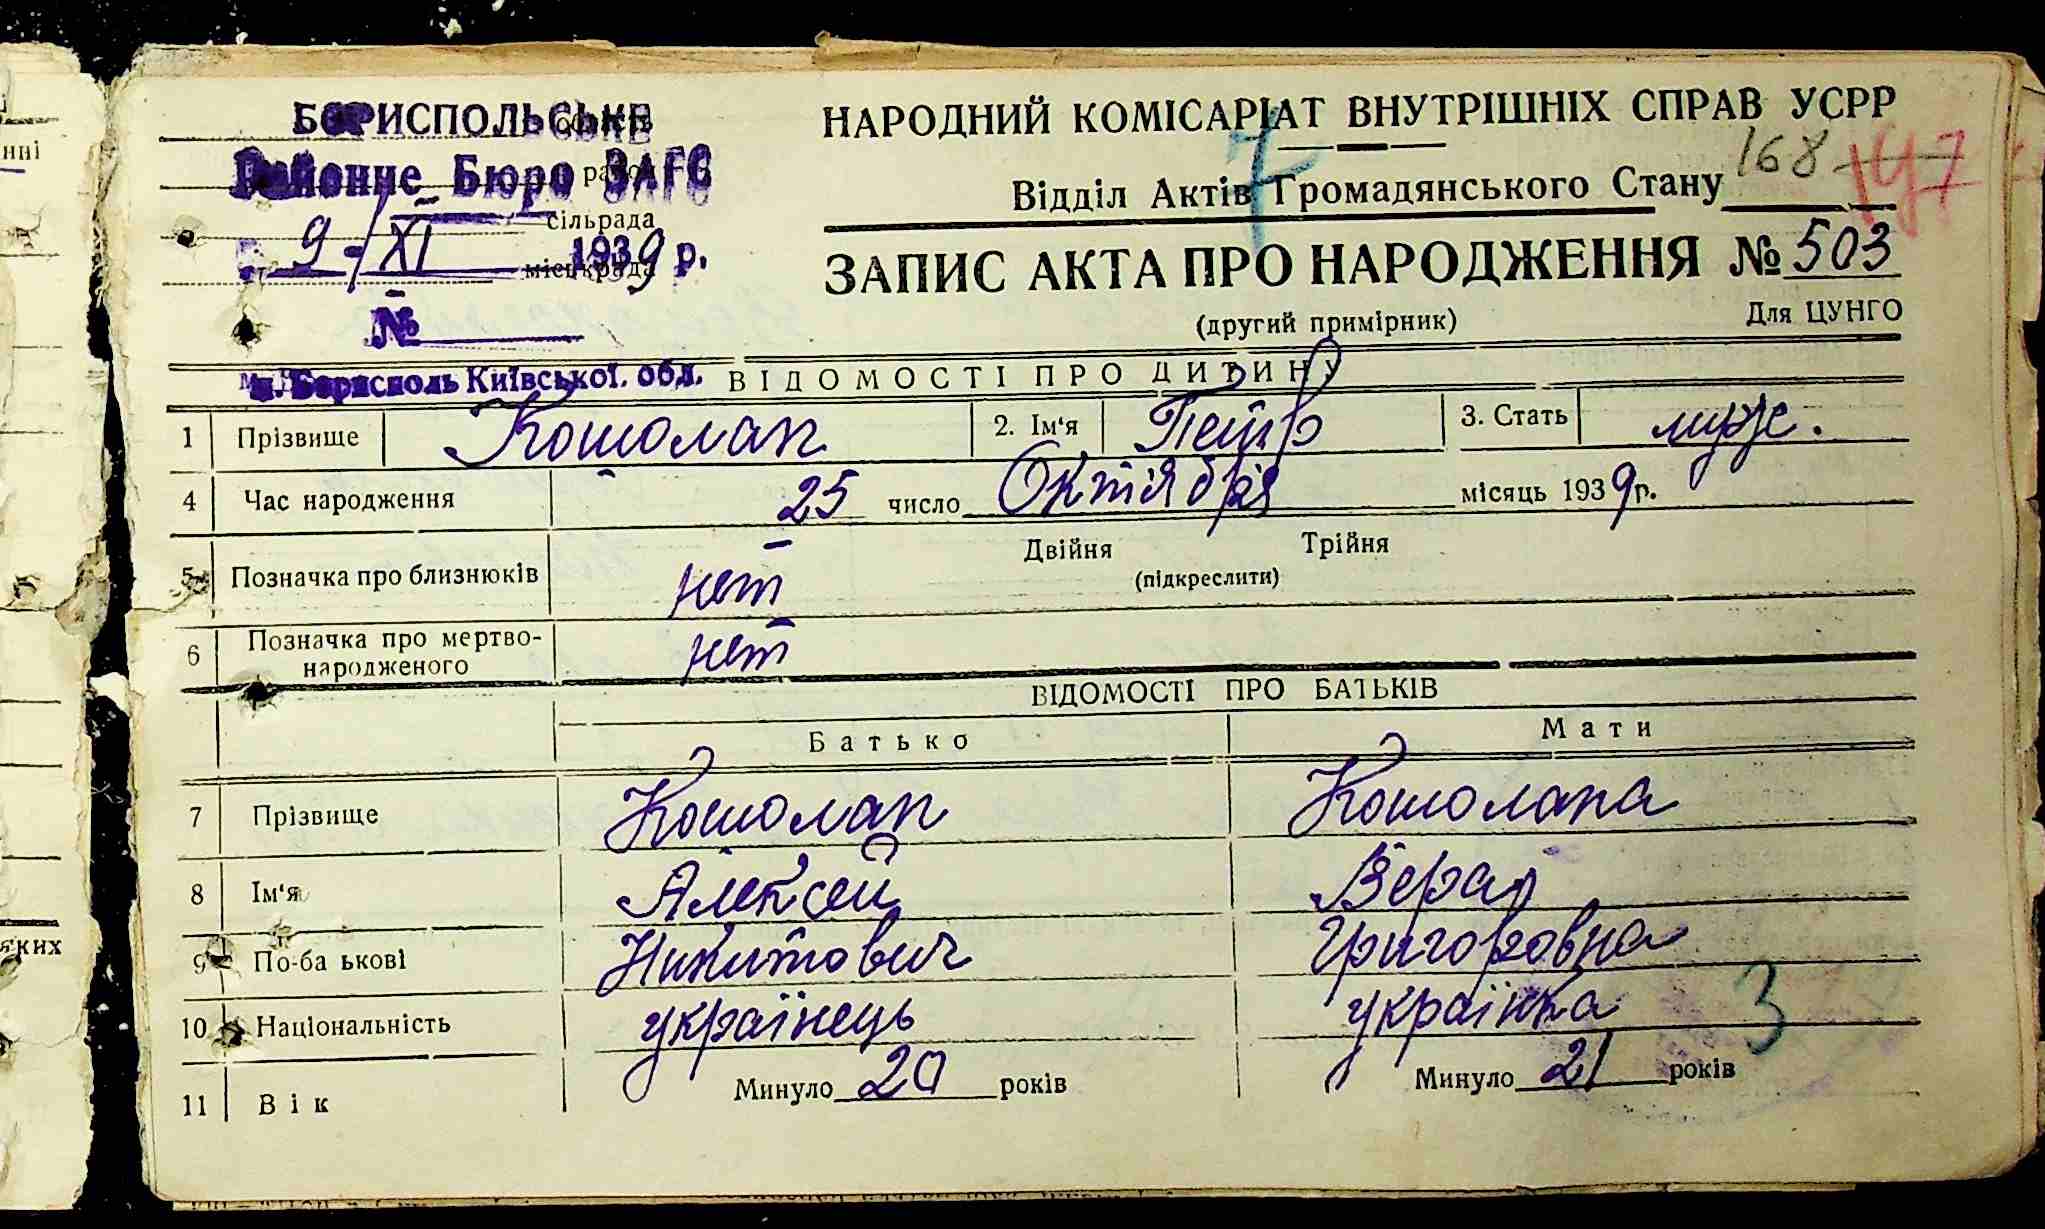 БОРИСПОЛЬСЬКЕ
Районне Бюро ЗАГС
сільрада
9-/XI 1939 р.
міськрада
№
м. Бориспіль Київської обл.
НАРОДНИЙ КОМІСАРІАТ ВНУТРІШНІХ СПРАВ УСРР
7
168 147
Відділ Актів Громадянського Стану
ЗАПИС АКТА ПРО НАРОДЖЕННЯ № 503
(другий примірник) Для ЦУНГО
ВІДОМОСТІ ПРО ДИТИНУ
1 Прізвище Кошолап 2. Ім'я Петр 3. Стать муж.
4 Час народження 25 число Октября місяць 1939 р.
Двійня Трійня
5 Позначка про близнюків нет (підкреслити)
6 Позначка про мертво-
народженого нет
ВІДОМОСТІ ПРО БАТЬКІВ
Батько Мати
7 Прізвище Кошолап Кошолапа
8 Ім'я Алексей Вера
9 По-ба ькові Никитович Григоровна
10 Національність українець українка
3
11 Вік Минуло 20 років Минуло 21 років
нні
яких